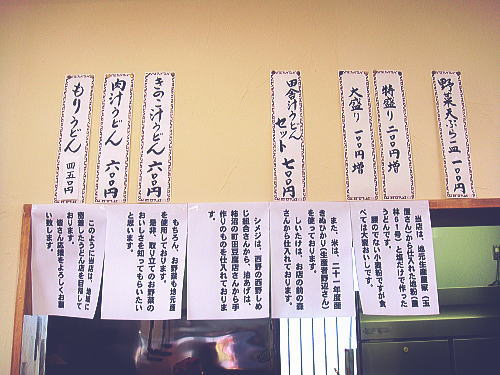 野菜天ぷら一皿 一〇〇円
特盛り 二〇〇円増
大盛り 一〇〇円増
田舎汁うどん
セット 七〇〇円
きのこ汁うどん 六〇〇円
肉汁うどん 六〇〇円
もりうどん 四五〇円
当店は、地元生産農家(玉
屋さんから仕入れた地粉(農
林61号)と塩だけで作った
うどんです。
腰のでない小麦粉ですが食
べては大変おいしです。
また、米は、二十一年度産
きぬひかり(生産者野辺さん)
を使っております。
しいたけは、お店の前の森
さんから仕入れております。
シメジは、西野の西野しめ
じ組合さんから、油あげは、
柿沼の町田豆腐店さんから手
作りのものを仕入れておりま
す。
もちろん、お野菜も地元産
を使用しております。
是非、取り立てのお野菜の
おいしさを知ってもらいたい
と思います。
このように当店は、地域に
密着したうどん店を目指して
おります。
皆さん応援をよろしくお願
い致します。